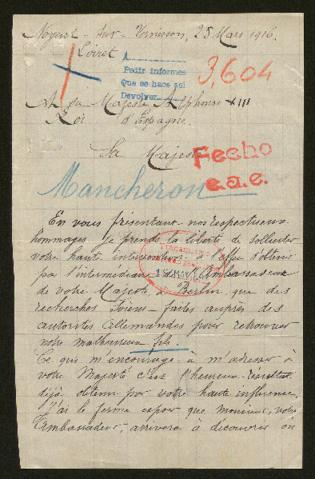 Nogent-sur-Vernisson, 25 Mars 1916.
Loiret
A
Pedir informes
Que se hace así
Devolver
3,604
A Sa Majesté Alphonse XIII
Roi d'Espagne.
Sa Majesté
Fecho
a.a.e.
Mancheron
En vous présentant nos respectueux
hommages je prends la liberté de solliciter
votre haute intervention à l'effet d'obtenir
par l'intermédiaire l'Ambassadeur
de votre Majesté à Berlin, que des
recherches soient faites auprès des
autorités Allemandes pour retrouver
notre malheureux fils.
Ce qui m'encourage à m'adresser à
votre Majesté c'est l'heureux résultat
déjà obtenu par votre haute influence.
J'ai le ferme espoir que monsieur, votre
Ambassadeur, arrivera à découvrir où